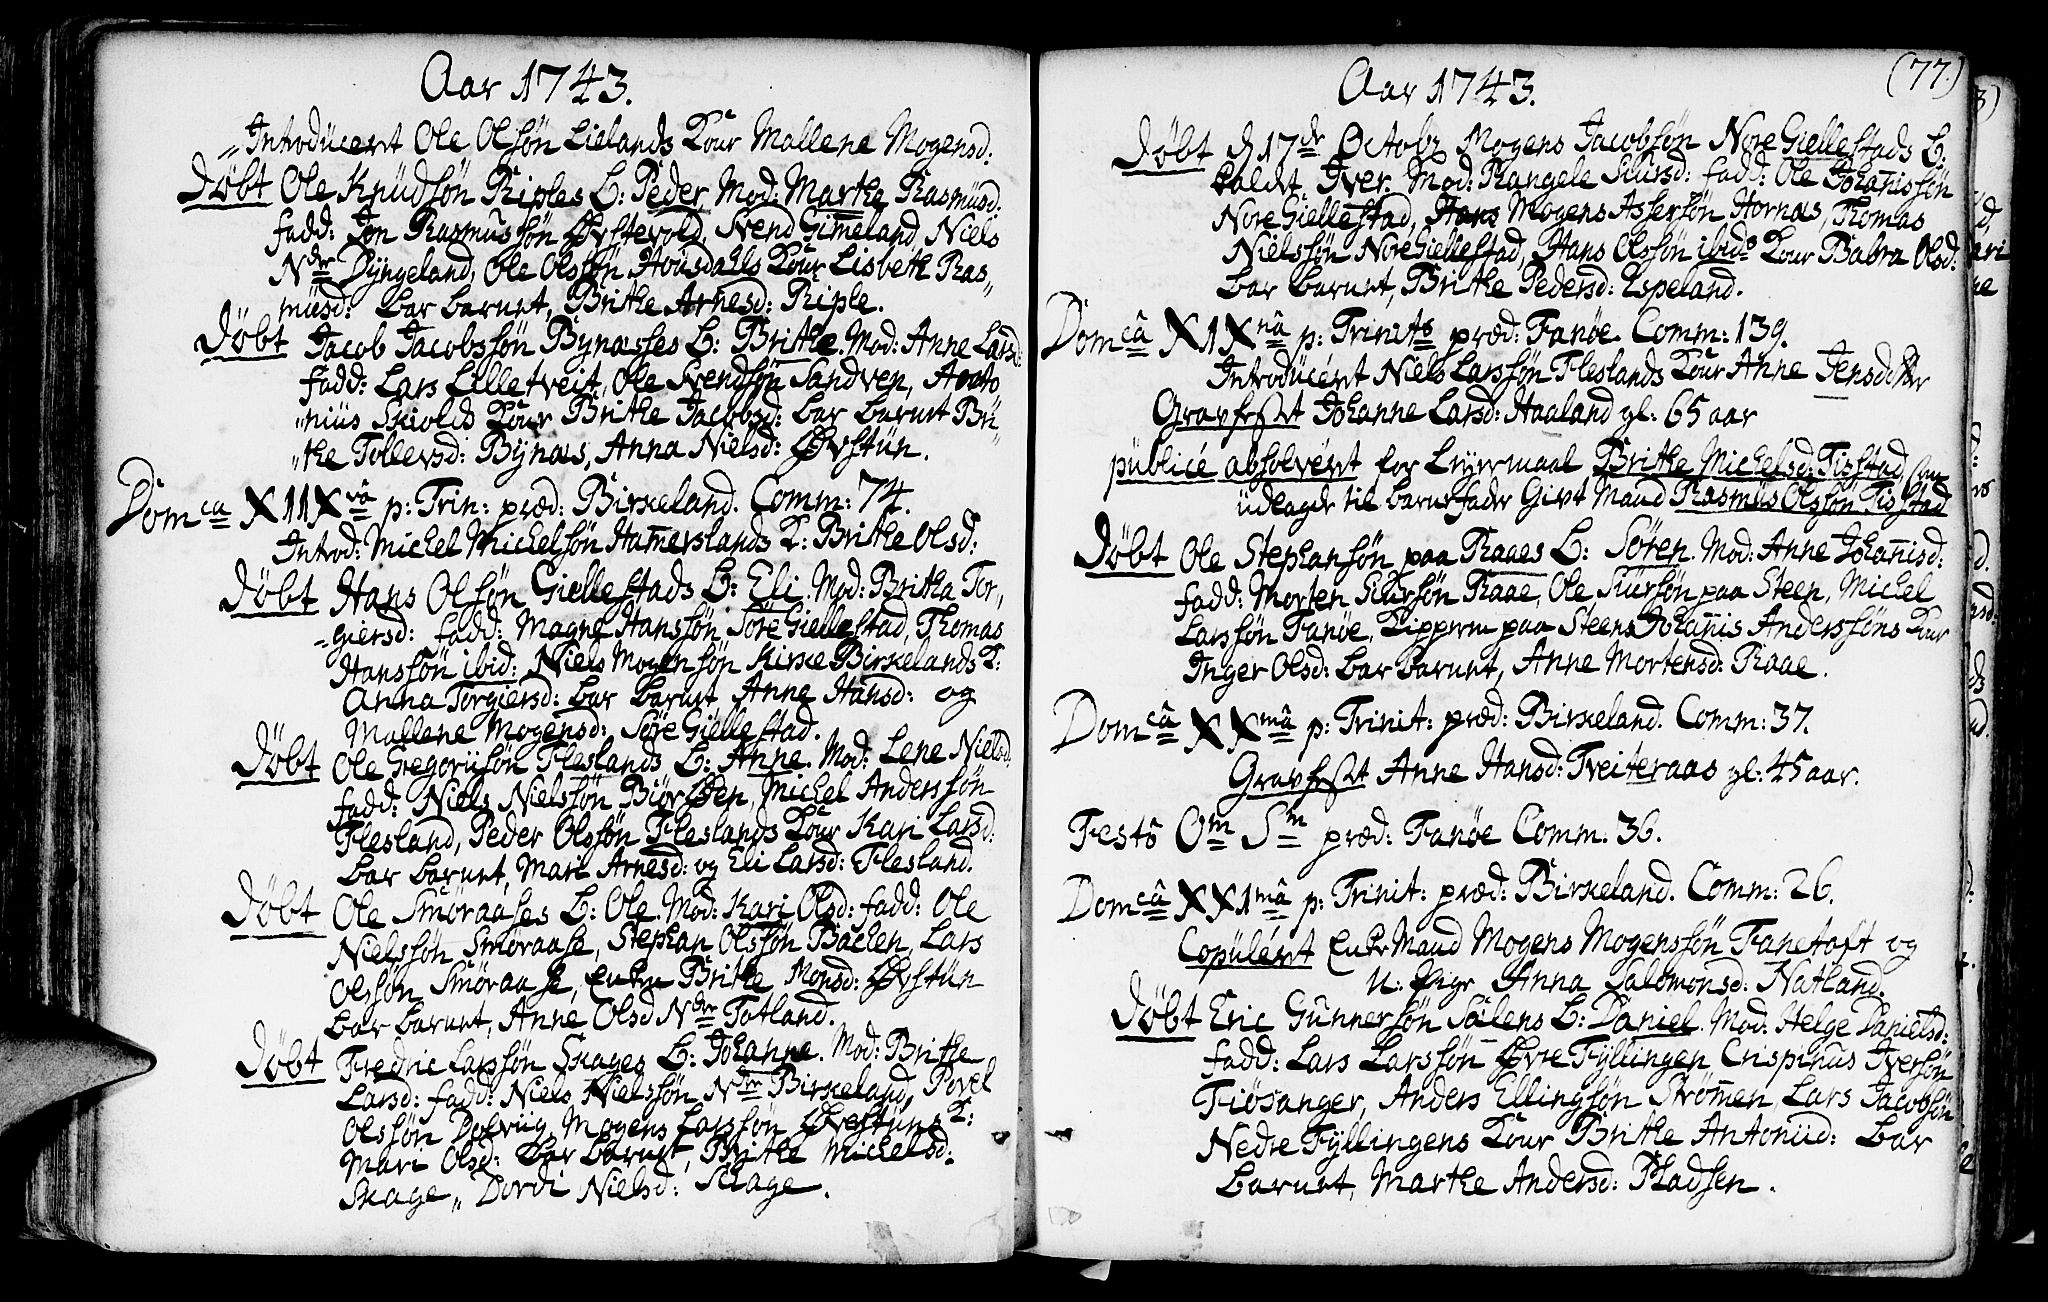 Aar 1743.
„Introdücert Ole Olsön Lielands Kour Mallene Mogensd:
Döbt Ole Knüdsön Riples B: Peder, Mod: Marthe Rasmüsd:
fadd: Jon Rasmussön Øvstevold, Svend Gimeland, Niels
Ndre Dyngeland, Ole Olssön Housdahls Kour Lisbeth Ras„
müsd: bar barnet, Brithe Arnesd: Riple.
Döbt Jacob Jacobssön Bynæsses B: Brithe. Mod: Anne Larsd:
fadd: Lars Lilletveit, Ole Svendsön Sandven, Anto
„nius Skiolds Kour Brithe Jacobsd: bar barnet Bri„
„the Tollevsd: Bynæs, Anna Nielsd: Øvstün.
Domca XIIXvâ p: Trin: præd: Birkeland. Comm: 74.
Introd: Michel Michelsön Hamerslands K: Brithe Olsd:
Döbt Hans Olsön Giellestads B: Eli. Mod: Britha Tor„
„giersd: fadd: Magne Hanssön Söre Giellestad, Thomas
Hanssön ibid: Niels Mogensön Kirke Birkelands K:
Anna Torgiersd: bar barnet, Anne Hansd: og
Mallene Mogensd: Söre Giellestad.
Döbt Ole Gregoriisön Fleslands B: Anne. Mod: Lene Nielsd.
fadd: Niels Nielssön Biörøen, Michel Anderssön
Flesland, Peder Olssön Fleslands Kour Kari Larsd:
bar barnet, Mari Arnesd: og Eli Larsd: Flesland.
Döbt Ole Smöraases B: Ole. Mod: Kari Olsd: fadd: Ole
Nielssön Smöraase, Stephan Olssön Bachen, Lars
Olssön Smöraase, Enken Brithe Monsd: Øvstün
bar barnet, Anne Olsd Ndre Totland.
Döbt Fredric Larssön Skages B: Johanne. Mod: Brithe
Larsd: fadd: Niels Nielssön Ndre Birkeland, Povel
Olssön Dolviig, Mogens Larssön Øvestüns K:
Mari Olsd: bar barnet, Brithe Michelsd:
Skage„ Dordi Nielsd: Skage.
Aar 1743. (77.)
Döbt d 17de Octobr Mogens Jacobsön Nore Giellestads B:
kaldt Iver. Mod: Rangele Siursd: fadd: Ole Johanissön
Nore Giellestad, Mogens Assersön Hornæs, Thomas
Nielssön Nore Giellestad, Hans Olssön ibid. Kour Babra Olsd:
bar barnet, Brithe Pedersd: Espeland.
Domcâ XIXnâ p: Trinits præd: Fanöe. Comm: 139.
Introdücert Niels Larssön Fleslands Kour Anne Jensdtter
Gravfæstet Johanne Larsd: Haaland gl: 65 aar
püblicé absolvert for Leyermaal Brithe Michelsd: Tisstad, som
üdlagde til barnefader Givt Mand Rasmüs Olssön Tisstad
Döbt Ole Stephansön paa Raaes B: Sören. Mod: Anne Johanisd:
fadd: Morten Siursön Raae, Ole Siursön paa Steen, Michel
Larssön Fanöe, Kipperen paa Steens Johannis Anderssöns Kour
Inger Olsd: bar barnet, Anne Mortensd: Raae.
Domcâ XXmâ p: Trinit: præd: Birkeland. Comm: 37.
Gravfæstet Anne Hansd: Tveiteraas gl: 45 aar.
Festô Om Sm præd: Fanöe Comm: 36.
Domcâ XXImâ p: Trinit: præd: Birkeland. Comm: 26.
Copülert Enke Mand Mogens Mogenssön Fanetoft og
u: Pige Anna Salomonsd: Natland.
Döbt Eric Günnersön Sälens B: Daniel. Mod: Helge Danielsd:
fadd: Lars Larssön Øvre Fyllingen Crispinus Iversön
Fiösanger, Anders Ellingsön Strömen, Lars Jacobsön
Nedre Fyllingens Kour Brithe Antoniid: bar
barnet, Marthe Andersd: Pladsen.